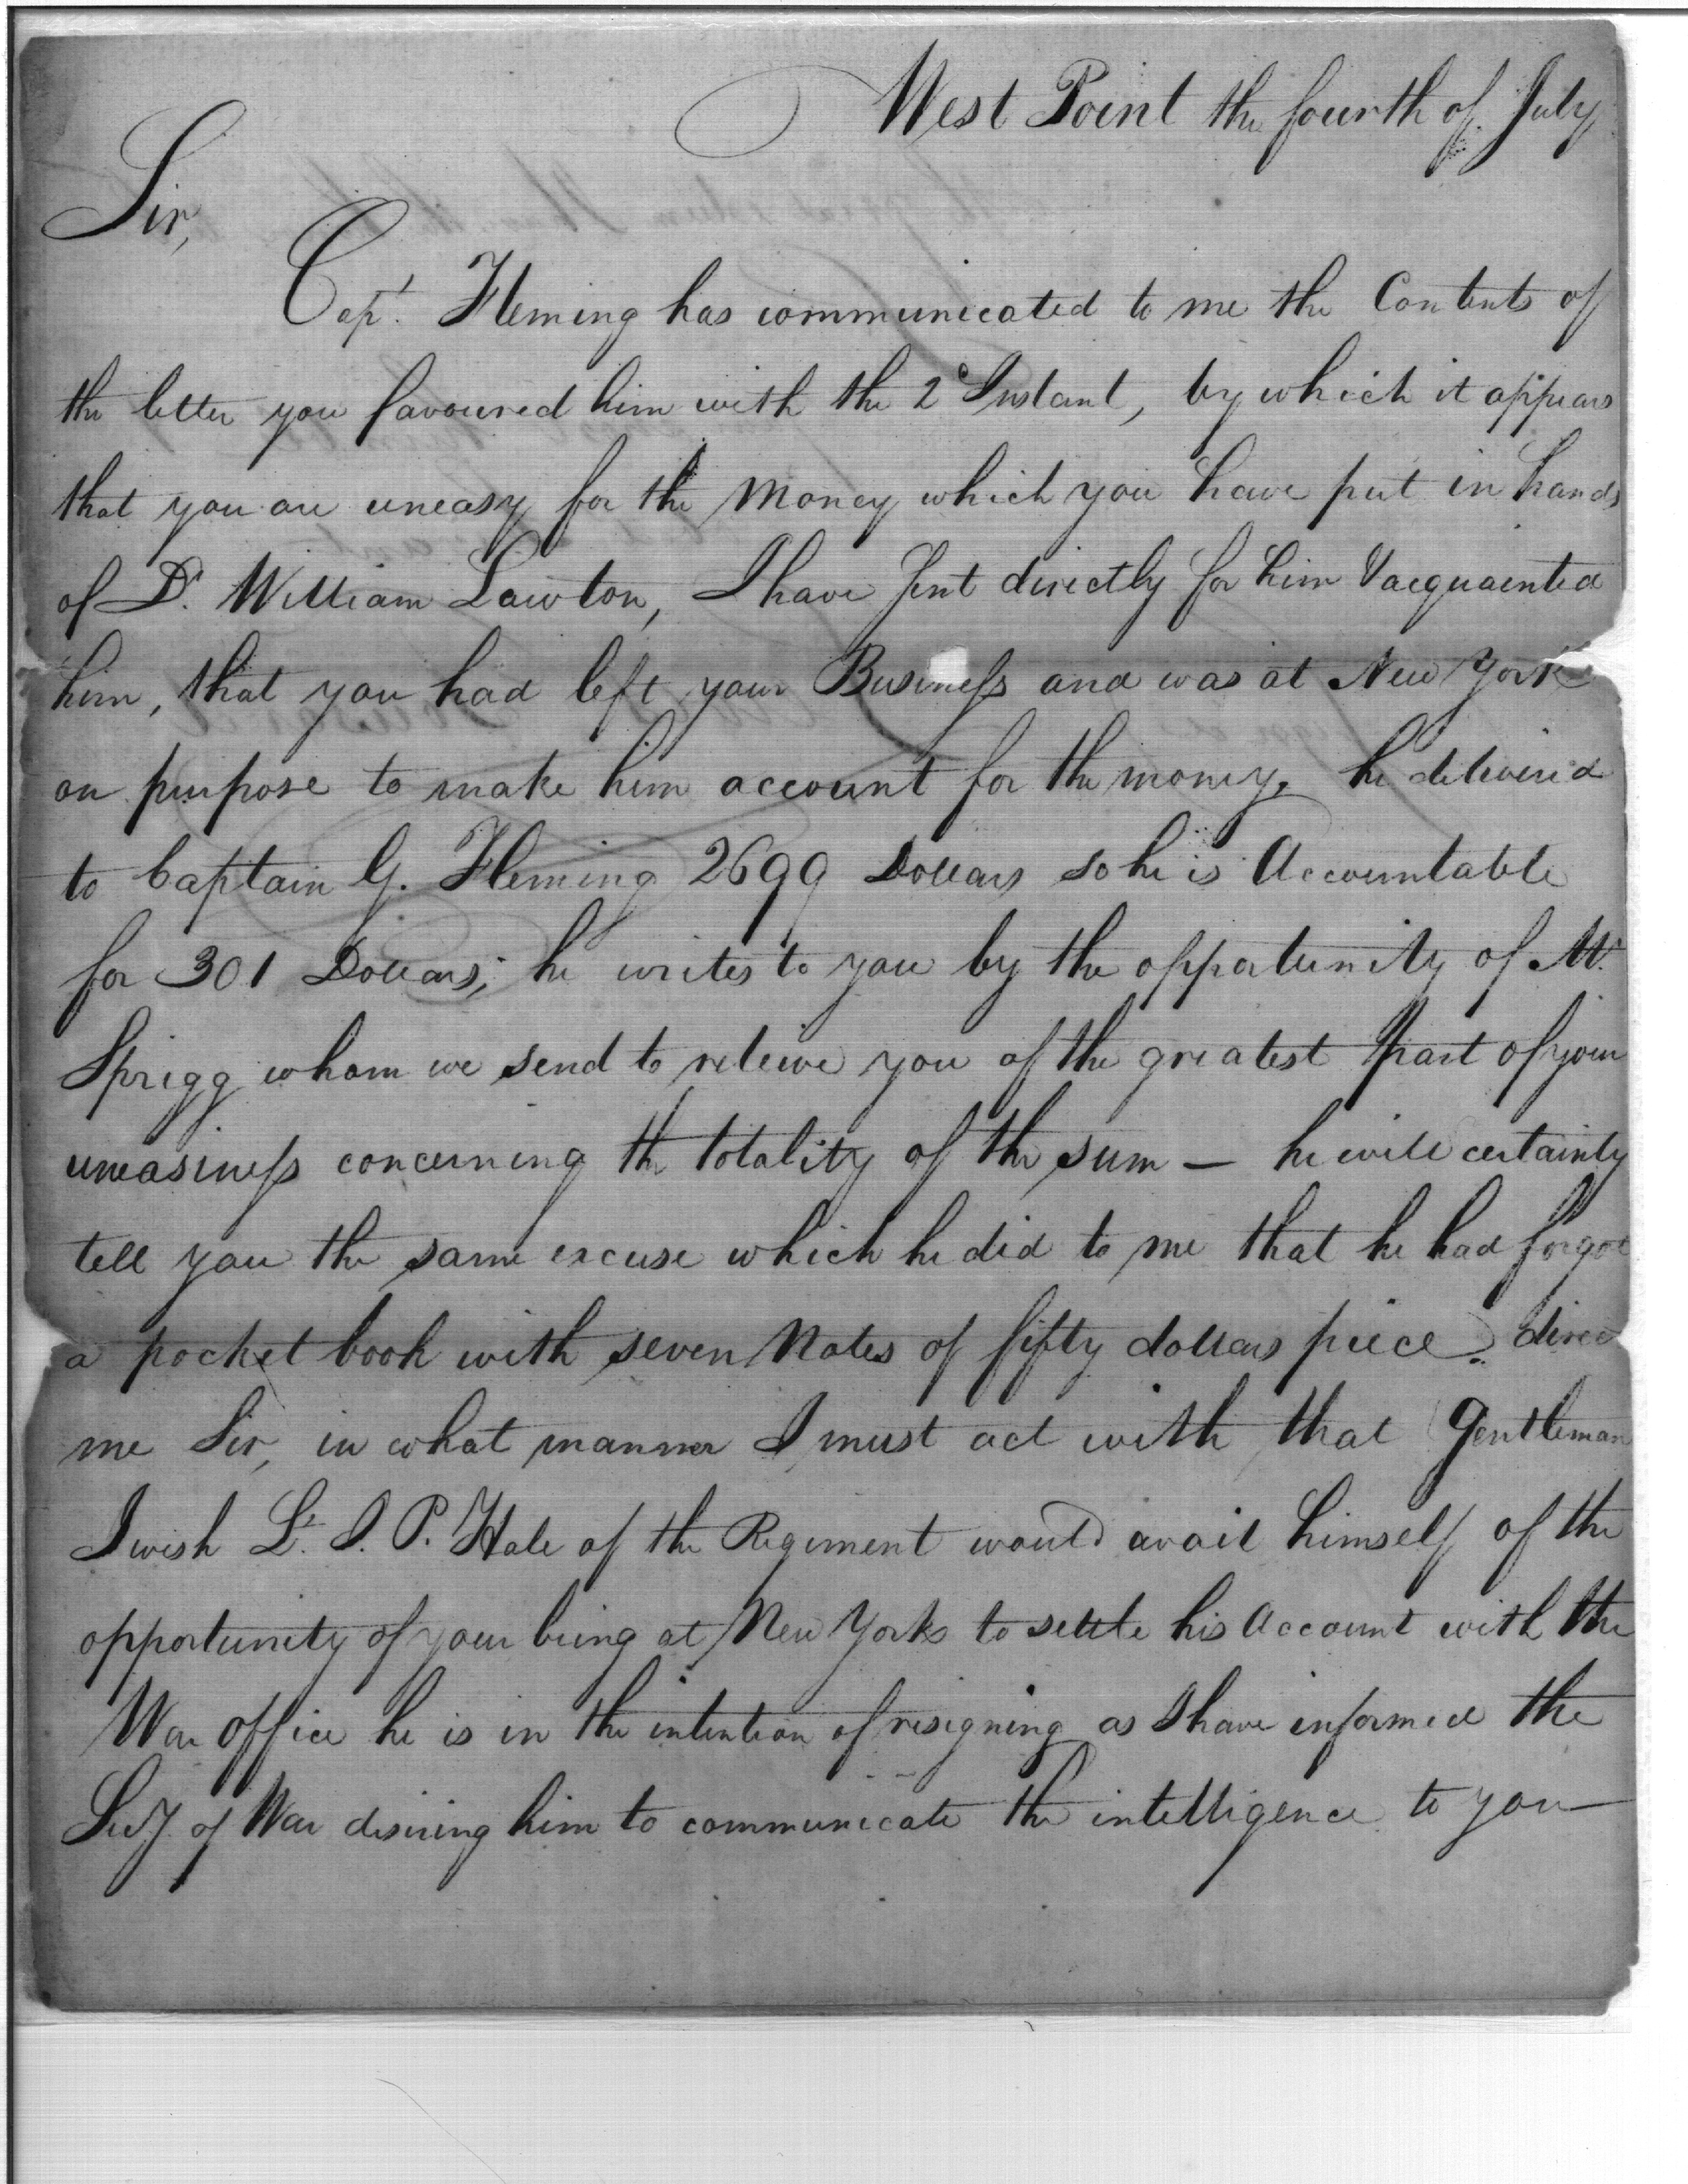 West Point the fourth of July
Sir,
Capt. Fleming has communicated to me the Contents of
the letter you favoured him with the 2d Instant, by which it appears
that you are uneasy for the Money which you have put in hands
of Dr. William Lawton, I have sent directly for him & acquainted
him, that you had left your Business and was at New York
on purpose to make him account for the money, he deliver'd
to Captain G. Fleming 2699 Dollars so he is Accountable
for 301 Dollars; he writes to you by the oppatunity of Mr.
Sprigg whom we send to releive you of the greatest Part of your
uneasiness concerning the totality of the sum — he will certainly
tell you the same excuse which he did to me that he had forgot
a pocket book with seven Notes of fifty dollars piece. direct
me Sir, in what manner I must act with that Gentleman
I wish Lt. I. P. Hale of the Regiment would avail himself of the
opportunity of your being at New York to settle his Account with the
War office he is in the intention of resigning as I have informed the
Secy. of War desiring him to communicate the intelligence to you —